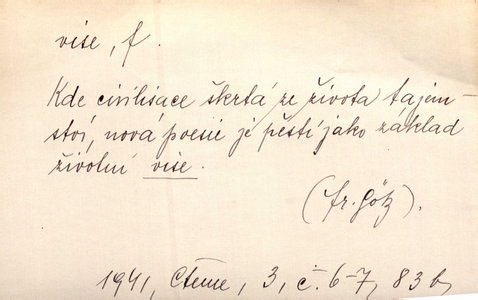 vise, f.
Kde civilisace škrtá ze života tajem-
ství, nová poesie je pěstí jako základ
životní vise.
(Fr. Götz).
1941, Čteme, 3, č. 6-7, 83 b